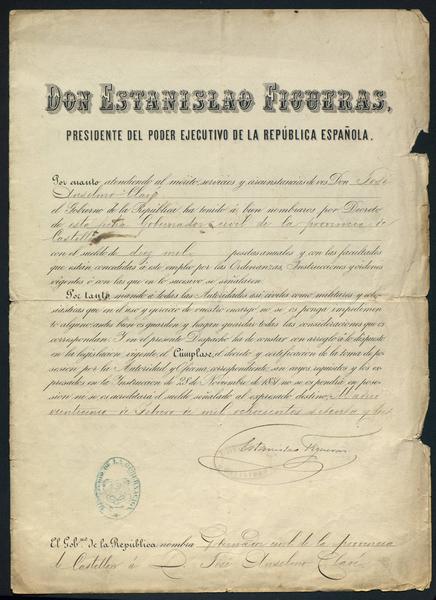 DON ESTANISLAO FIGUERAS,
PRESIDENTE DEL PODER EJECUTIVO DE LA REPÚBLICA ESPAÑOLA.
Por cuanto, atendiendo al mérito, servicios y circunstancias de vos Don José
Anselmo Clavé
el Gobierno de la República ha tenido á bien nombraros por Decreto
de esta fecha Gobernador civil de la provincia de
Castellón
con el sueldo de diez mil pesetas anuales y con las facultades
que están concedidas á este empleo por las Ordenanzas, Instrucciones y órdenes
vigentes ó con las que en lo sucesivo se señalaren.
Por tanto mando á todas las Autoridades así civiles como militares y ecle-
siásticas que en el uso y ejercicio de vuestro encargo no se os ponga impedimen-
to alguno: antes bien os guarden y hagan guardar todas las consideraciones que os
correspondan. Y en el presente Despacho ha de constar con arreglo á lo dispuesto
en la legislación vigente el Cumplase, el decreto y certificación de la toma de po-
sesión por la Autoridad y Oficina correspondiente: sin cuyos requisitos y los ex-
presados en la Instrucción de 28 de Noviembre de 1851 no se os pondrá en pose-
sión no se os acreditará el sueldo señalado al expresado destino. Madrid
veinticinco de Febrero de mil ochocientos setenta y tres
Estanislao Figueras
MINISTERIO DE LA GOBERNACION
El Gob.no de la República, nombra Gobernador civil de la provincia
de Castellón á D. José Anselmo Clavé